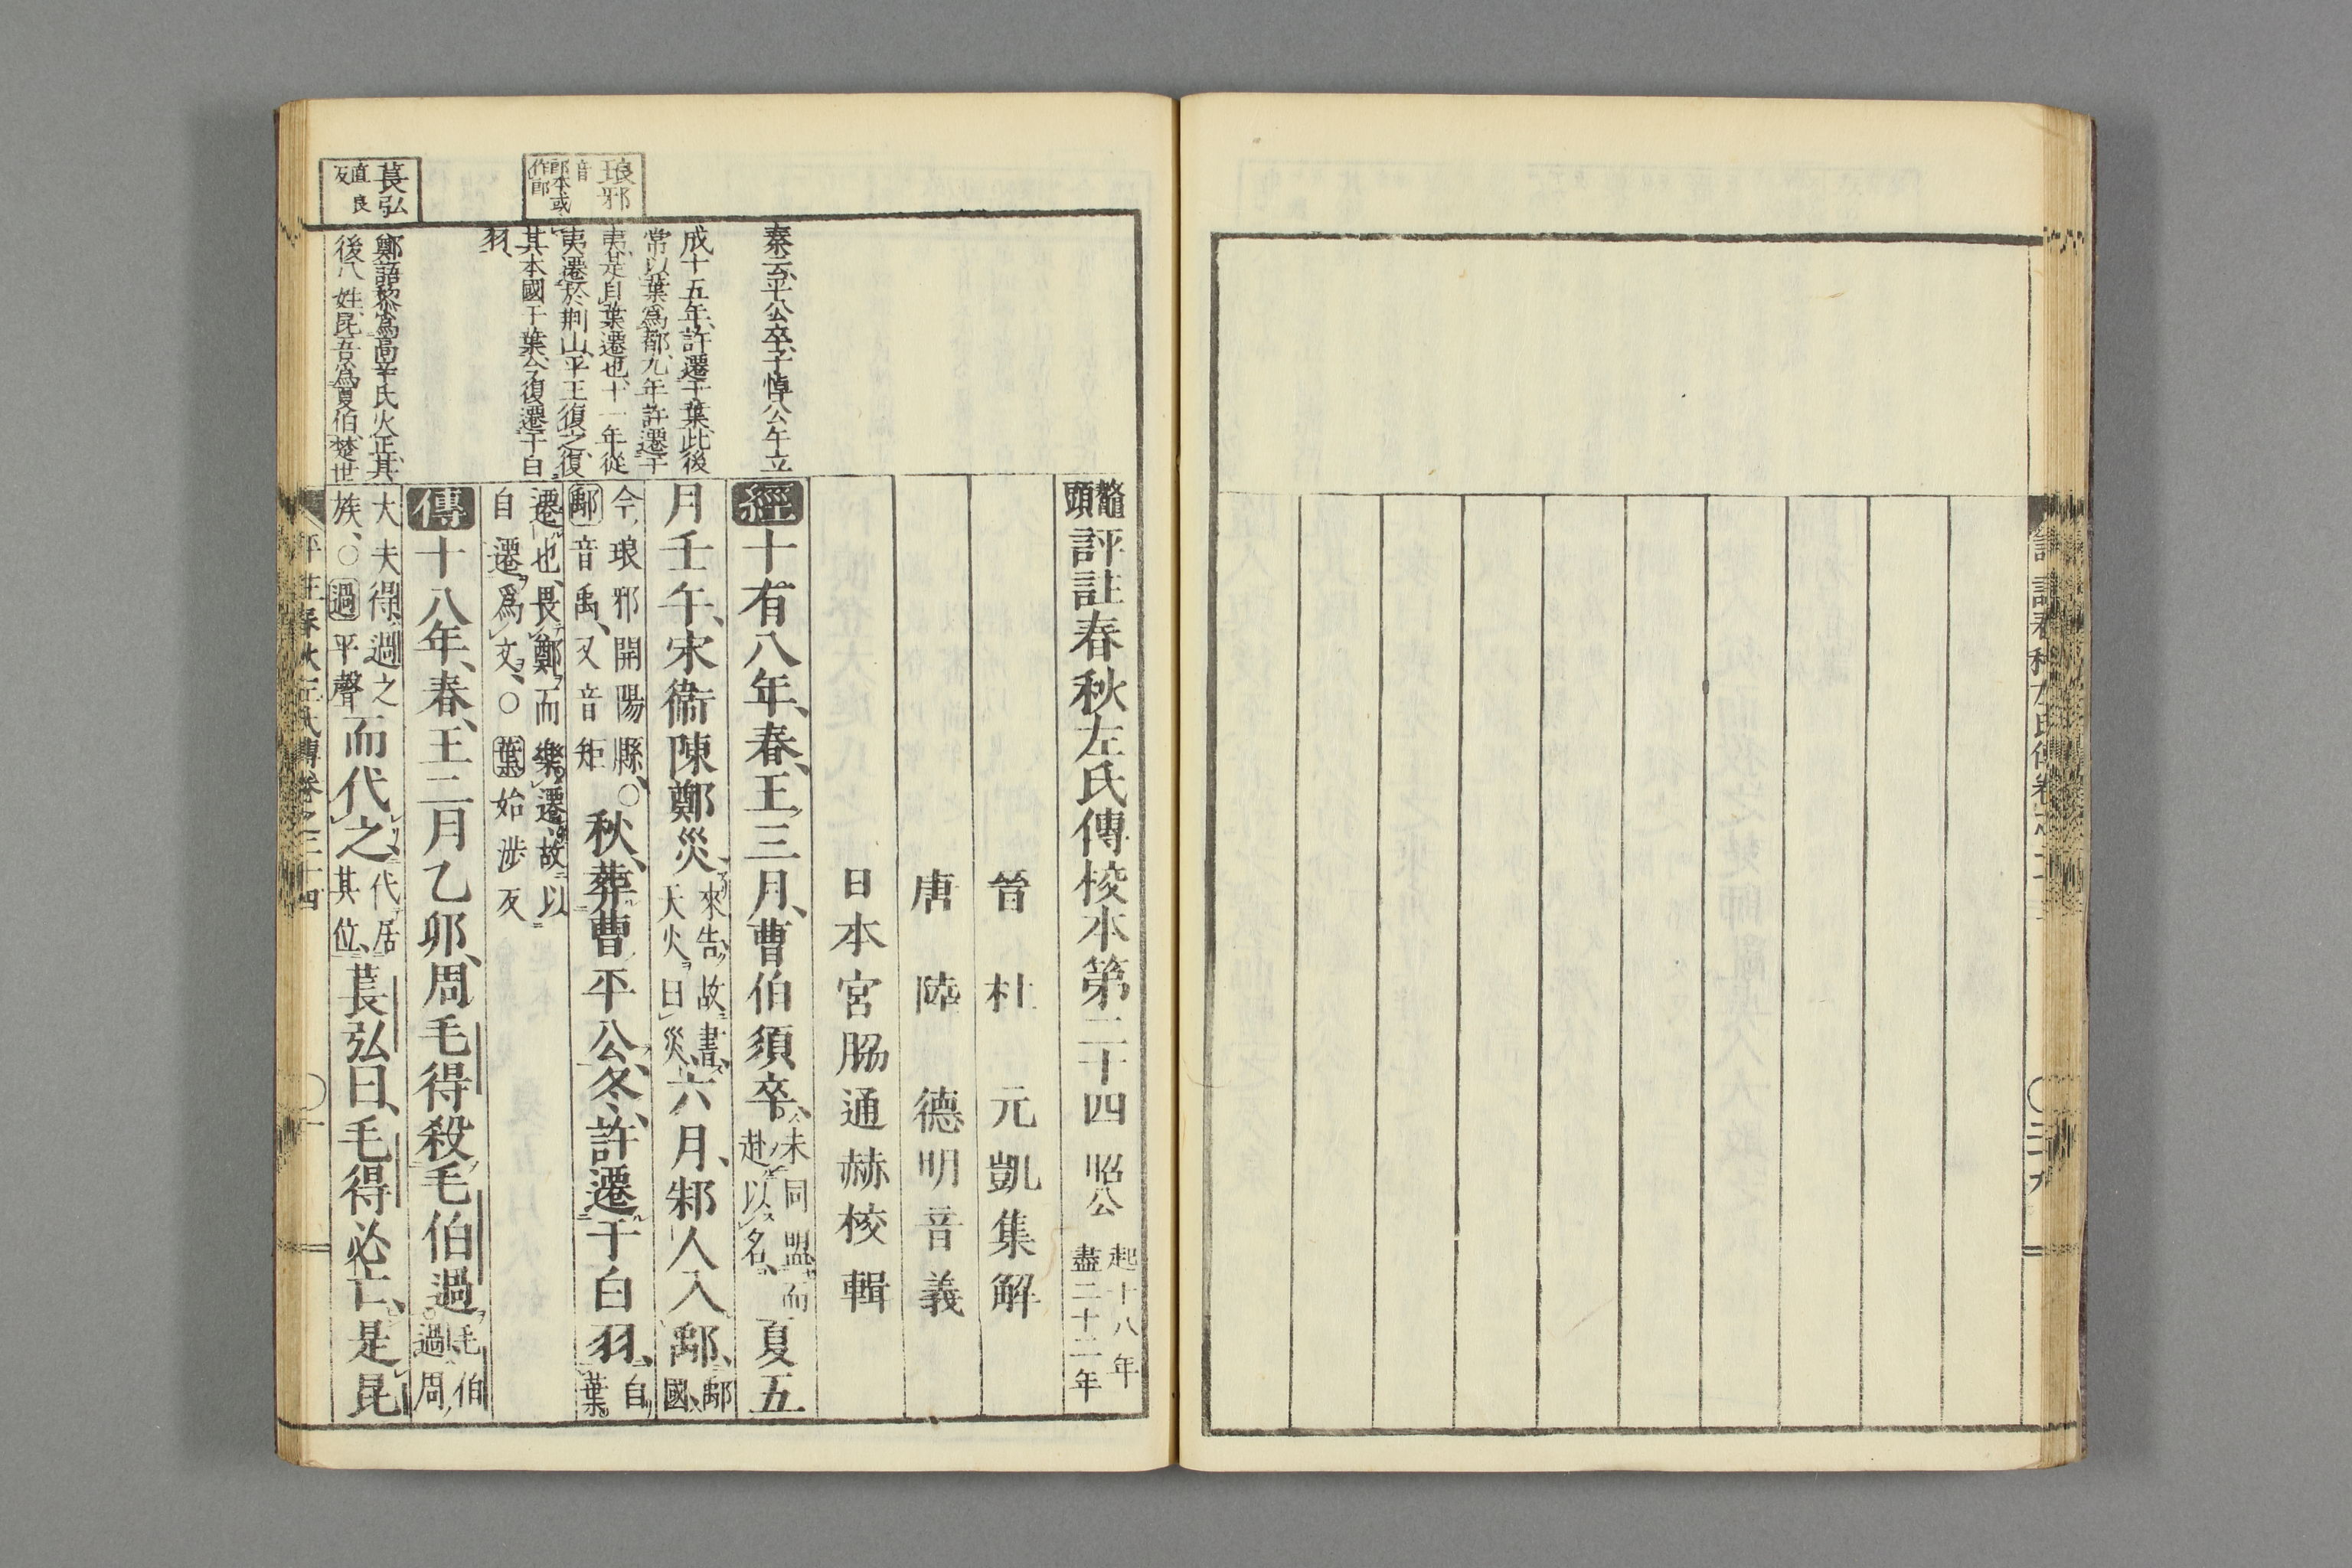 鼇頭評註春秋左氏傳校本第二十四 昭公 起十八年 盡二十二年
晉 杜 元凱集解
唐 陸 德明音義
日本 宮脇通赫校輯
經十有八年、春、王三月、曹伯須卒、未同盟而赴以名、夏五
月壬午、宋衞陳鄭災、來告、故書、天火曰災、六月、邾人入鄅、鄅國、
今琅邪開陽縣、○鄅音禹、又音矩 秋、葬曹平公、冬、許遷于白羽、自葉
遷也、畏鄭而樂遷、故以自遷爲文、○葉始涉反
傳十八年、春、王二月乙卯、周毛得殺毛伯過、毛伯過、周
大夫得、過之族、○過平聲而代之、代居其位、萇弘曰、毛得必亡、是昆
秦云、平公卒、子悼公午立
成十五年、許遷于葉、此後
常以葉爲都、九年許遷于
夷、是自葉遷也、十一年從
夷遷於荆山、平王復之、復
其本國于葉、今復遷于白
羽、
鄭語黎爲高辛氏火正、其
後八姓、昆吾爲夏伯、楚世
琅邪 音郎本或作郎
萇弘 直良反
評註春秋左氏傳卷之二十四 ○一